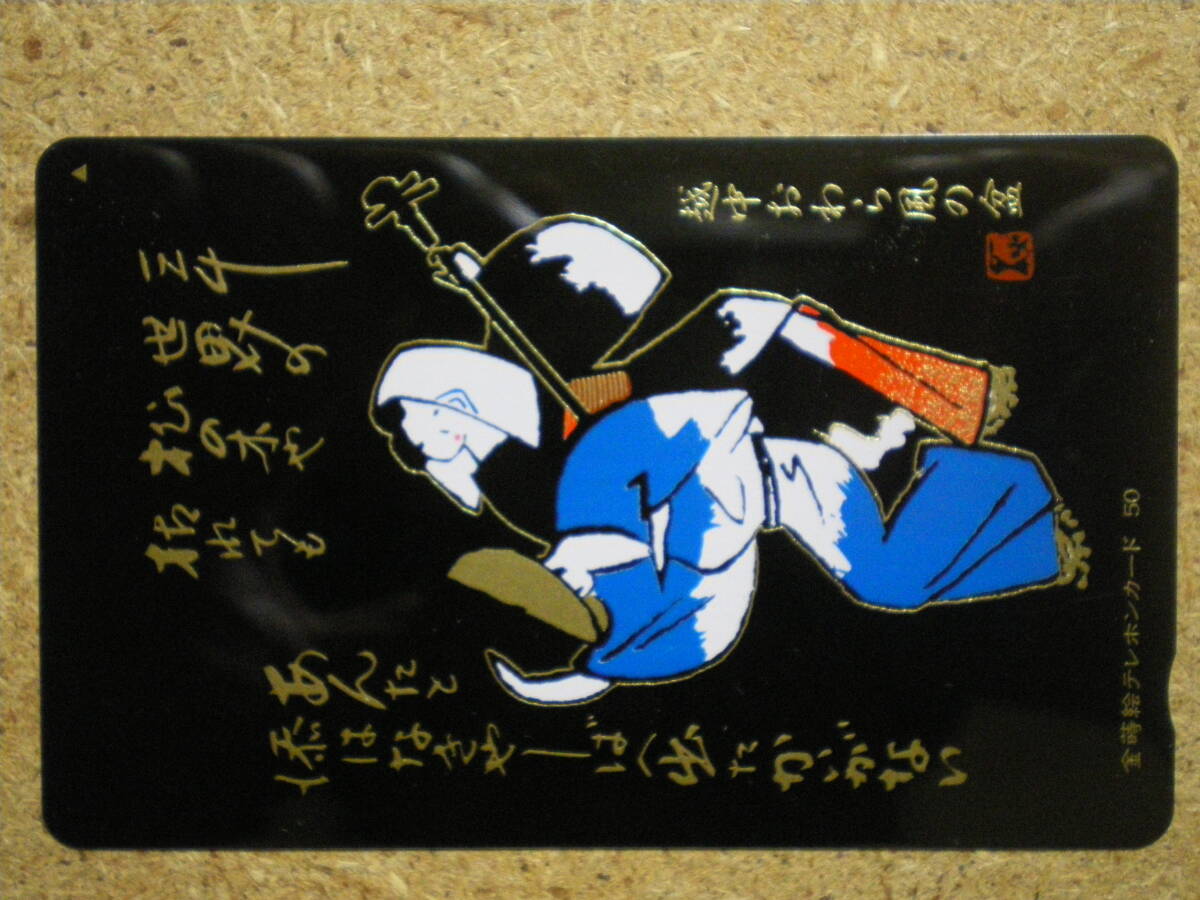 越中おわら風の盆
三千
世界の
松の木や
枯れても
あんたと
添はなきやしばへ出たかがない
金蒔絵テレホンカード 50